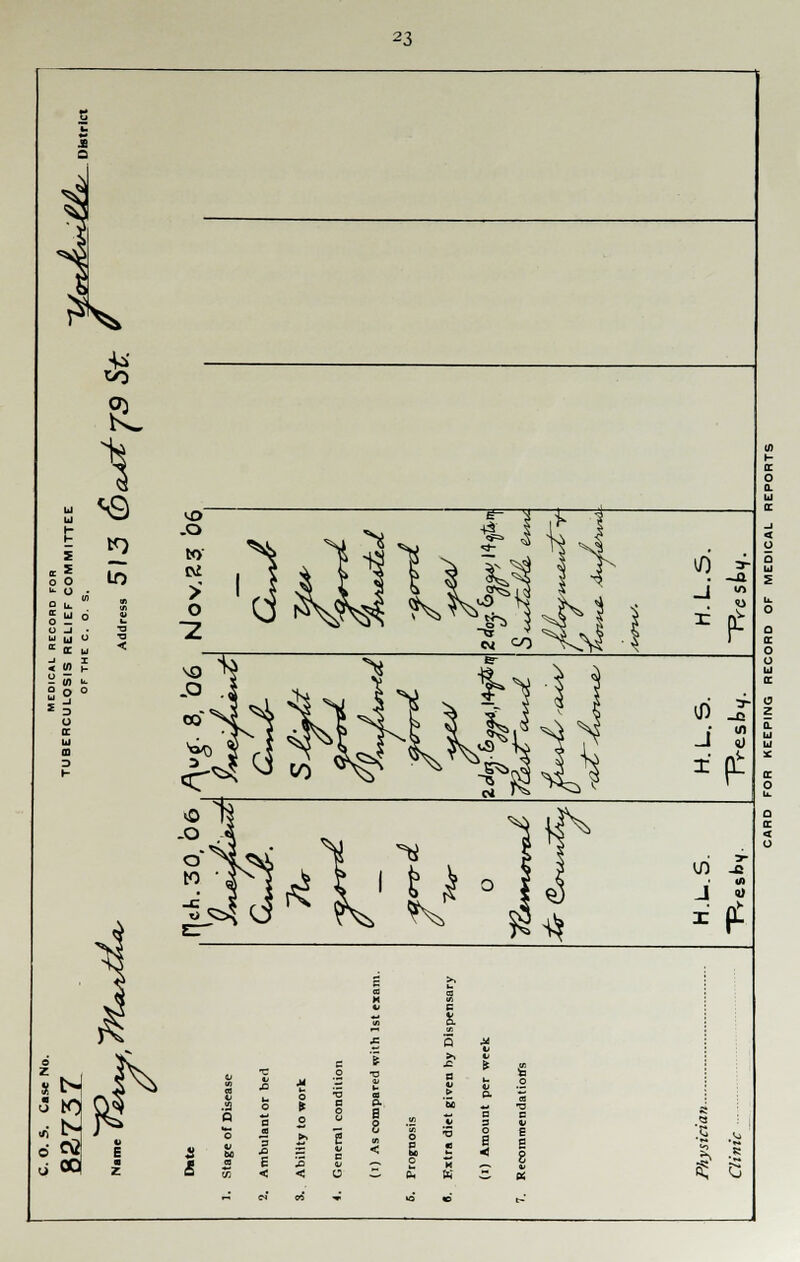 23
MEDICAL RECORD FOR
TUBERCULOSIS RELIEF COMMITTEE
OF THE C. O. S.
C. O. S. Case No.
82737
Name Pery, Martha Address 513 East 79 St. Yorkville District
Date Mch. 30, '06 Aug. 8, '06 Nov. 23 '06
1. Stage of Disease Incipient Incipient —
2. Ambulant or bed Amb. Amb. Amb
3. Ability to work No Slight Yes
4. General condition good good good
(1) As compared with 1st exam. — Improved Arrested
5. Prognosis good good good
6. Extra diet given by Dispensary no yes yes
(1) Amount per week 0 2 doz. Eggs, 14 qts m 2 doz. Eggs, 14 qts m
7. Recommendations Removal to Country Rest and fresh air at home Suitable employment & home supervision.
Physician H.L.S. H.L.S. H.L.S.
Clinic Presby. Presby. Presby.
CARD FOR KEEPING RECORD OF MEDICAL REPORTS